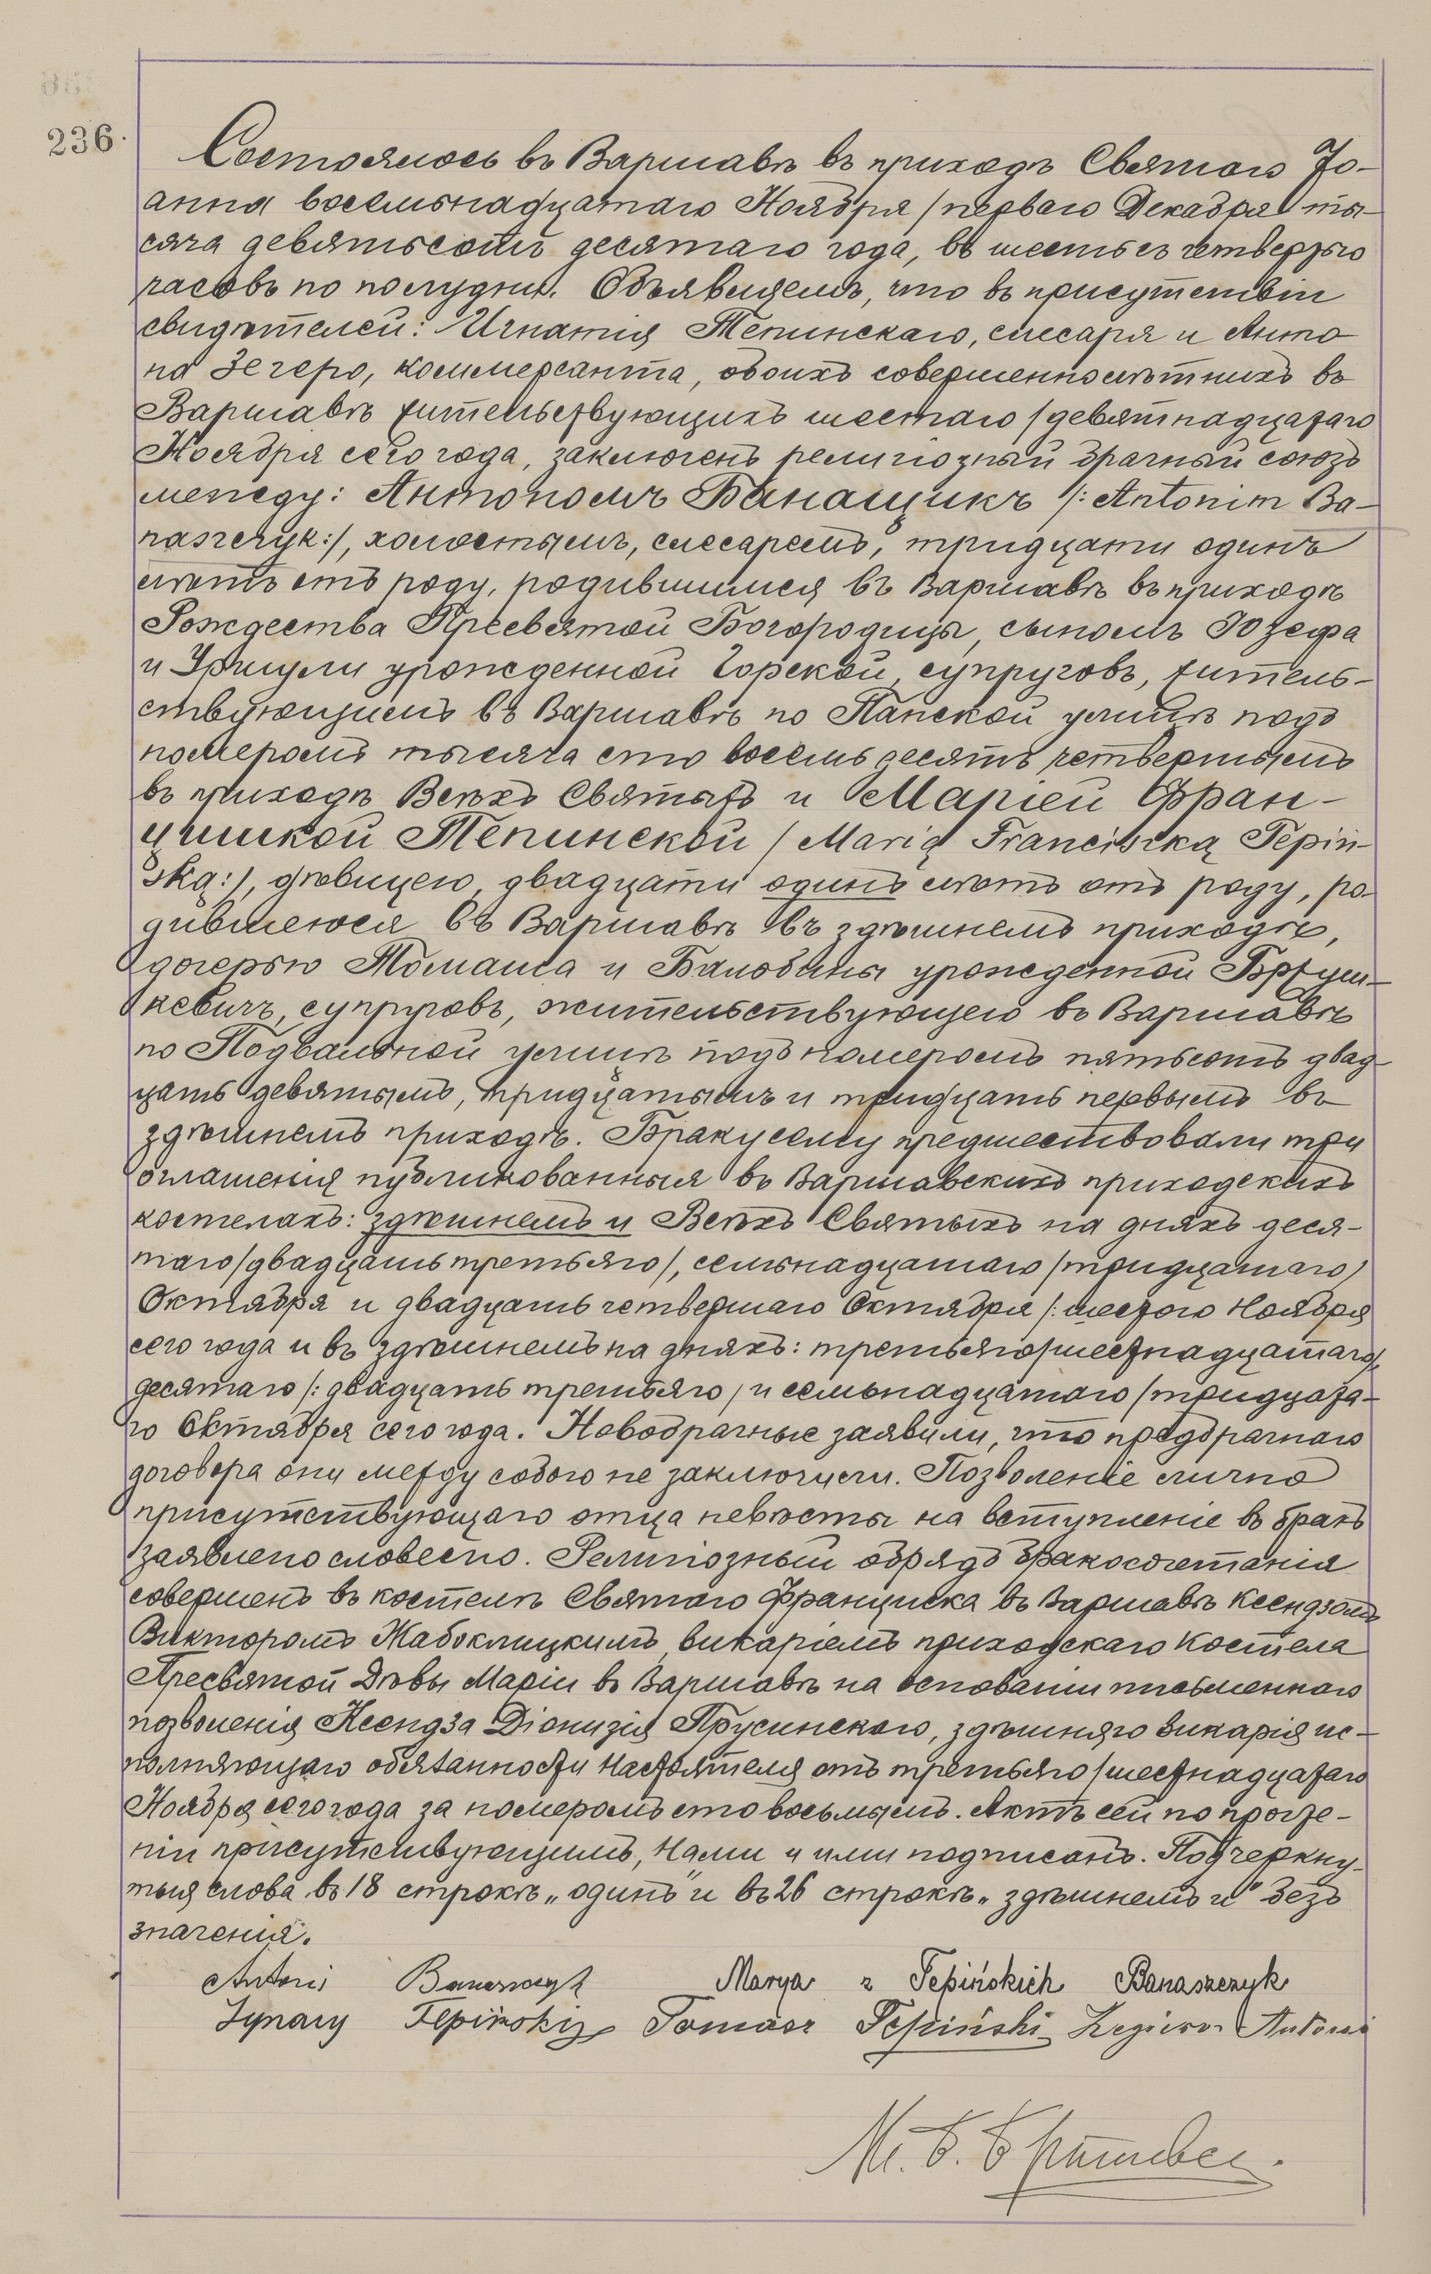 236.
Состоялось въ Варшавѣ въ приходѣ Святаго Іо-
анна восемьнадцатаго Ноября /перваго Декабря ты-
сяча девятьсотъ десятаго года, въ шесть съ четвертью
часовъ по полудни. Объявляемъ, что въ присутствіи
свидѣтелей: Игнатія Тепинскаго, слесаря и Анто
на Зегеро, коммерсанта, обоихъ совершеннолѣтнихъ въ
Варшавѣ жительствующихъ шестаго /девятнадцатаго
Ноября сего года, заключенъ религіозный брачный союзъ
между: Антономъ Банащикъ /: Antonim Ba-
naszczyk:/, холостымъ, слесаремъ, тридцати одинъ
лѣтъ отъ роду, родившимся въ Варшавѣ въ приходѣ
Рождества Пресвятой Богородицы, сыномъ Іозефа
и Уршули урожденной Горской, супруговъ, житель-
ствующимъ въ Варшавѣ по Панской улицѣ подъ
номеромъ тысяча сто восемьдесятъ четвертымъ
въ приходѣ Всѣхъ Святыхъ и Маріей Фран-
цишкой Тепинской / Marią Franciszką Tepiń-
ską:/, дѣвицею, двадцати одинъ лѣтъ отъ роду, ро-
дившеюся въ Варшавѣ въ здѣшнемъ приходѣ,
дочерью Томаша и Бальбины урожденной Бртуш-
кевичъ, супруговъ, жительствующею въ Варшавѣ
по Подвальной улицѣ подъ номеромъ пятьсотъ двад-
цать девятымъ, тридцатымъ и тридцать первымъ въ
здѣшнемъ приходѣ. Браку сему предшествовали три
оглашенія публикованныя въ Варшавскихъ приходскихъ
костелахъ: здѣшнемъ и Всѣхъ Святыхъ на дняхъ деся-
таго /двадцать третьяго/, семьнадцатаго /тридцатаго/
Октября и двадцать четвертаго Октября /: шестого Ноября
сего года и въ здѣшнемъ на дняхъ: третьяго /шестнадцатаго/,
десятаго /: двадцать третьяго / и семьнадцатаго /тридцата-
го Октября сего года. Новобрачные заявили, что предбрачнаго
договора они между собою не заключили. Позволеніе лично
присутствующаго отца невѣсты на вступленіе въ бракъ
заявлено словесно. Религіозный обрядъ бракосочетанія
совершенъ въ костелѣ Святаго Франциска въ Варшавѣ Ксендзомъ
Викторомъ Жабоклицкимъ, викаріемъ приходскаго Костела
Пресвятой Дѣвы Маріи въ Варшавѣ на основаніи письменнаго
позволенія Ксендза Діонизія Прусинскаго, здѣшняго викарія ис-
полняющаго обязанности Настоятеля отъ третьяго /шестнадцатаго
Ноября сего года за номеромъ сто восьмымъ. Актъ сей по прочте-
ніи присутствующимъ, Нами и ими подписанъ. Подчеркну-
тыя слова въ 18 строкѣ „одинъ" и въ 26 строкѣ „здѣшнемъ и" безъ
значенія.
Antoni Banaszczyk Marya z Tepińskich Banaszczyk
Ignacy Tepiński Tomasz Tepiński Antoni